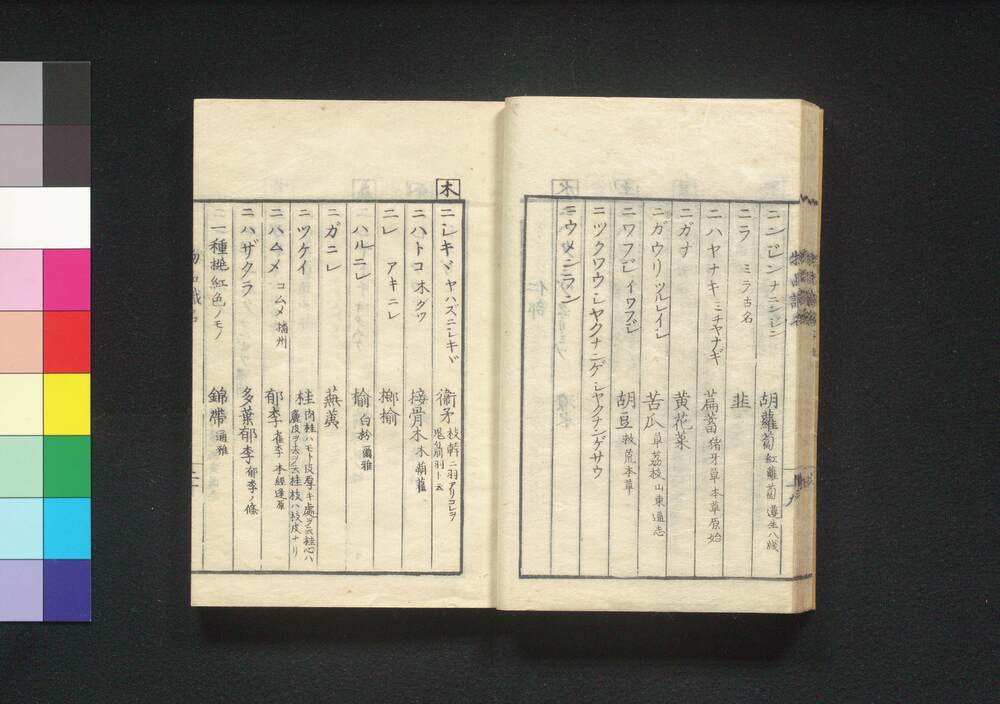 ニンジン ナニンジン 胡蘿蔔 紅蘿蔔 遵生八牋
ニラ ミラ古名 韭
ニハヤナキ ミチヤナギ 萹蓄 猪牙草 本草原始
ニガナ 黄花菜
ニガウリ ツルレイシ 苦瓜 草茘枝 山東通志
ニワフジ イワフジ 胡豆 救荒本草
ニツクワウシヤクナンゲ シヤクナンゲサウ
ニウメンラン
木
ニシキヾ ヤハズニシキヾ 衞矛 枝幹ニ羽アリコレヲ
鬼箭羽ト云
ニハトコ 木 接骨木 木蒴藋
ニレ アキニレ 榔榆
ハルニレ 榆 白枌 爾雅
ニガニレ 蕪荑
ニツケイ 桂 肉桂ハモト皮厚キ處ヲ云桂心ハ
麤皮ヲ去ヲ云桂枝ハ枝皮ナリ
ニハムメ コムメ 播州 郁李 雀李 本經逢原
ニハザクラ 多葉郁李 郁李ノ條
ニ一種桃紅色ノモノ 錦帶 通雅